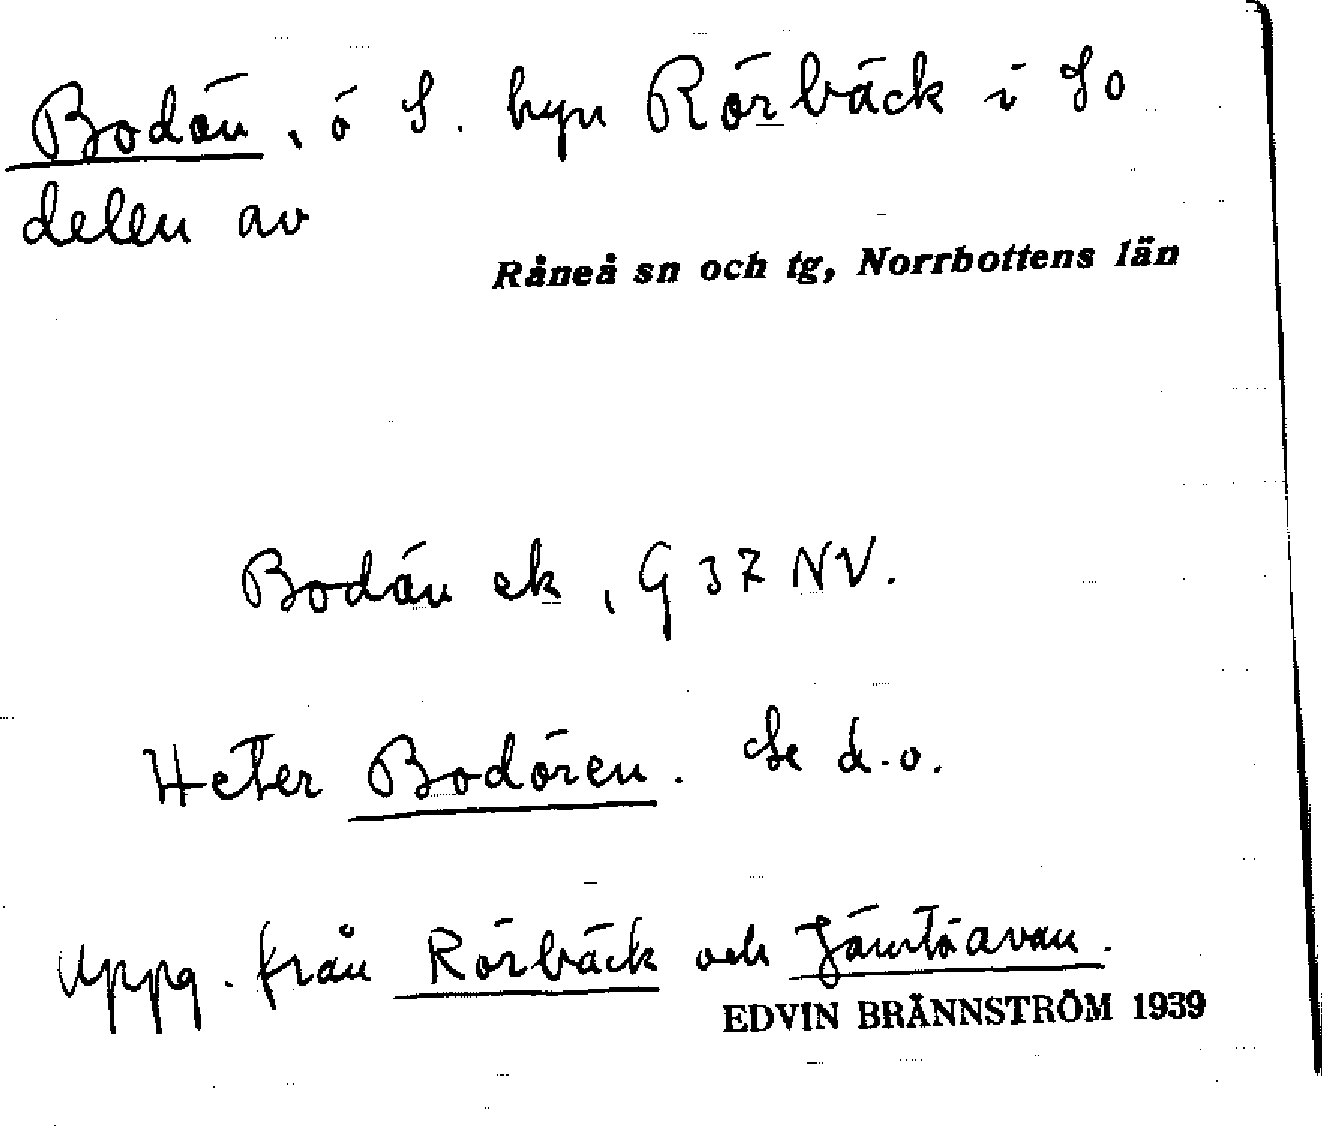 Bodön, ö S. byn Rörbäck i So
delen av
Råneå sn och tg, Norrbottens län
Bodön ek, G 37 NV.
Heter Bodören. Se d.o.
Uppg. från Rörbäck och Jämtöavan.
EDVIN BRÄNNSTRÖM 1939